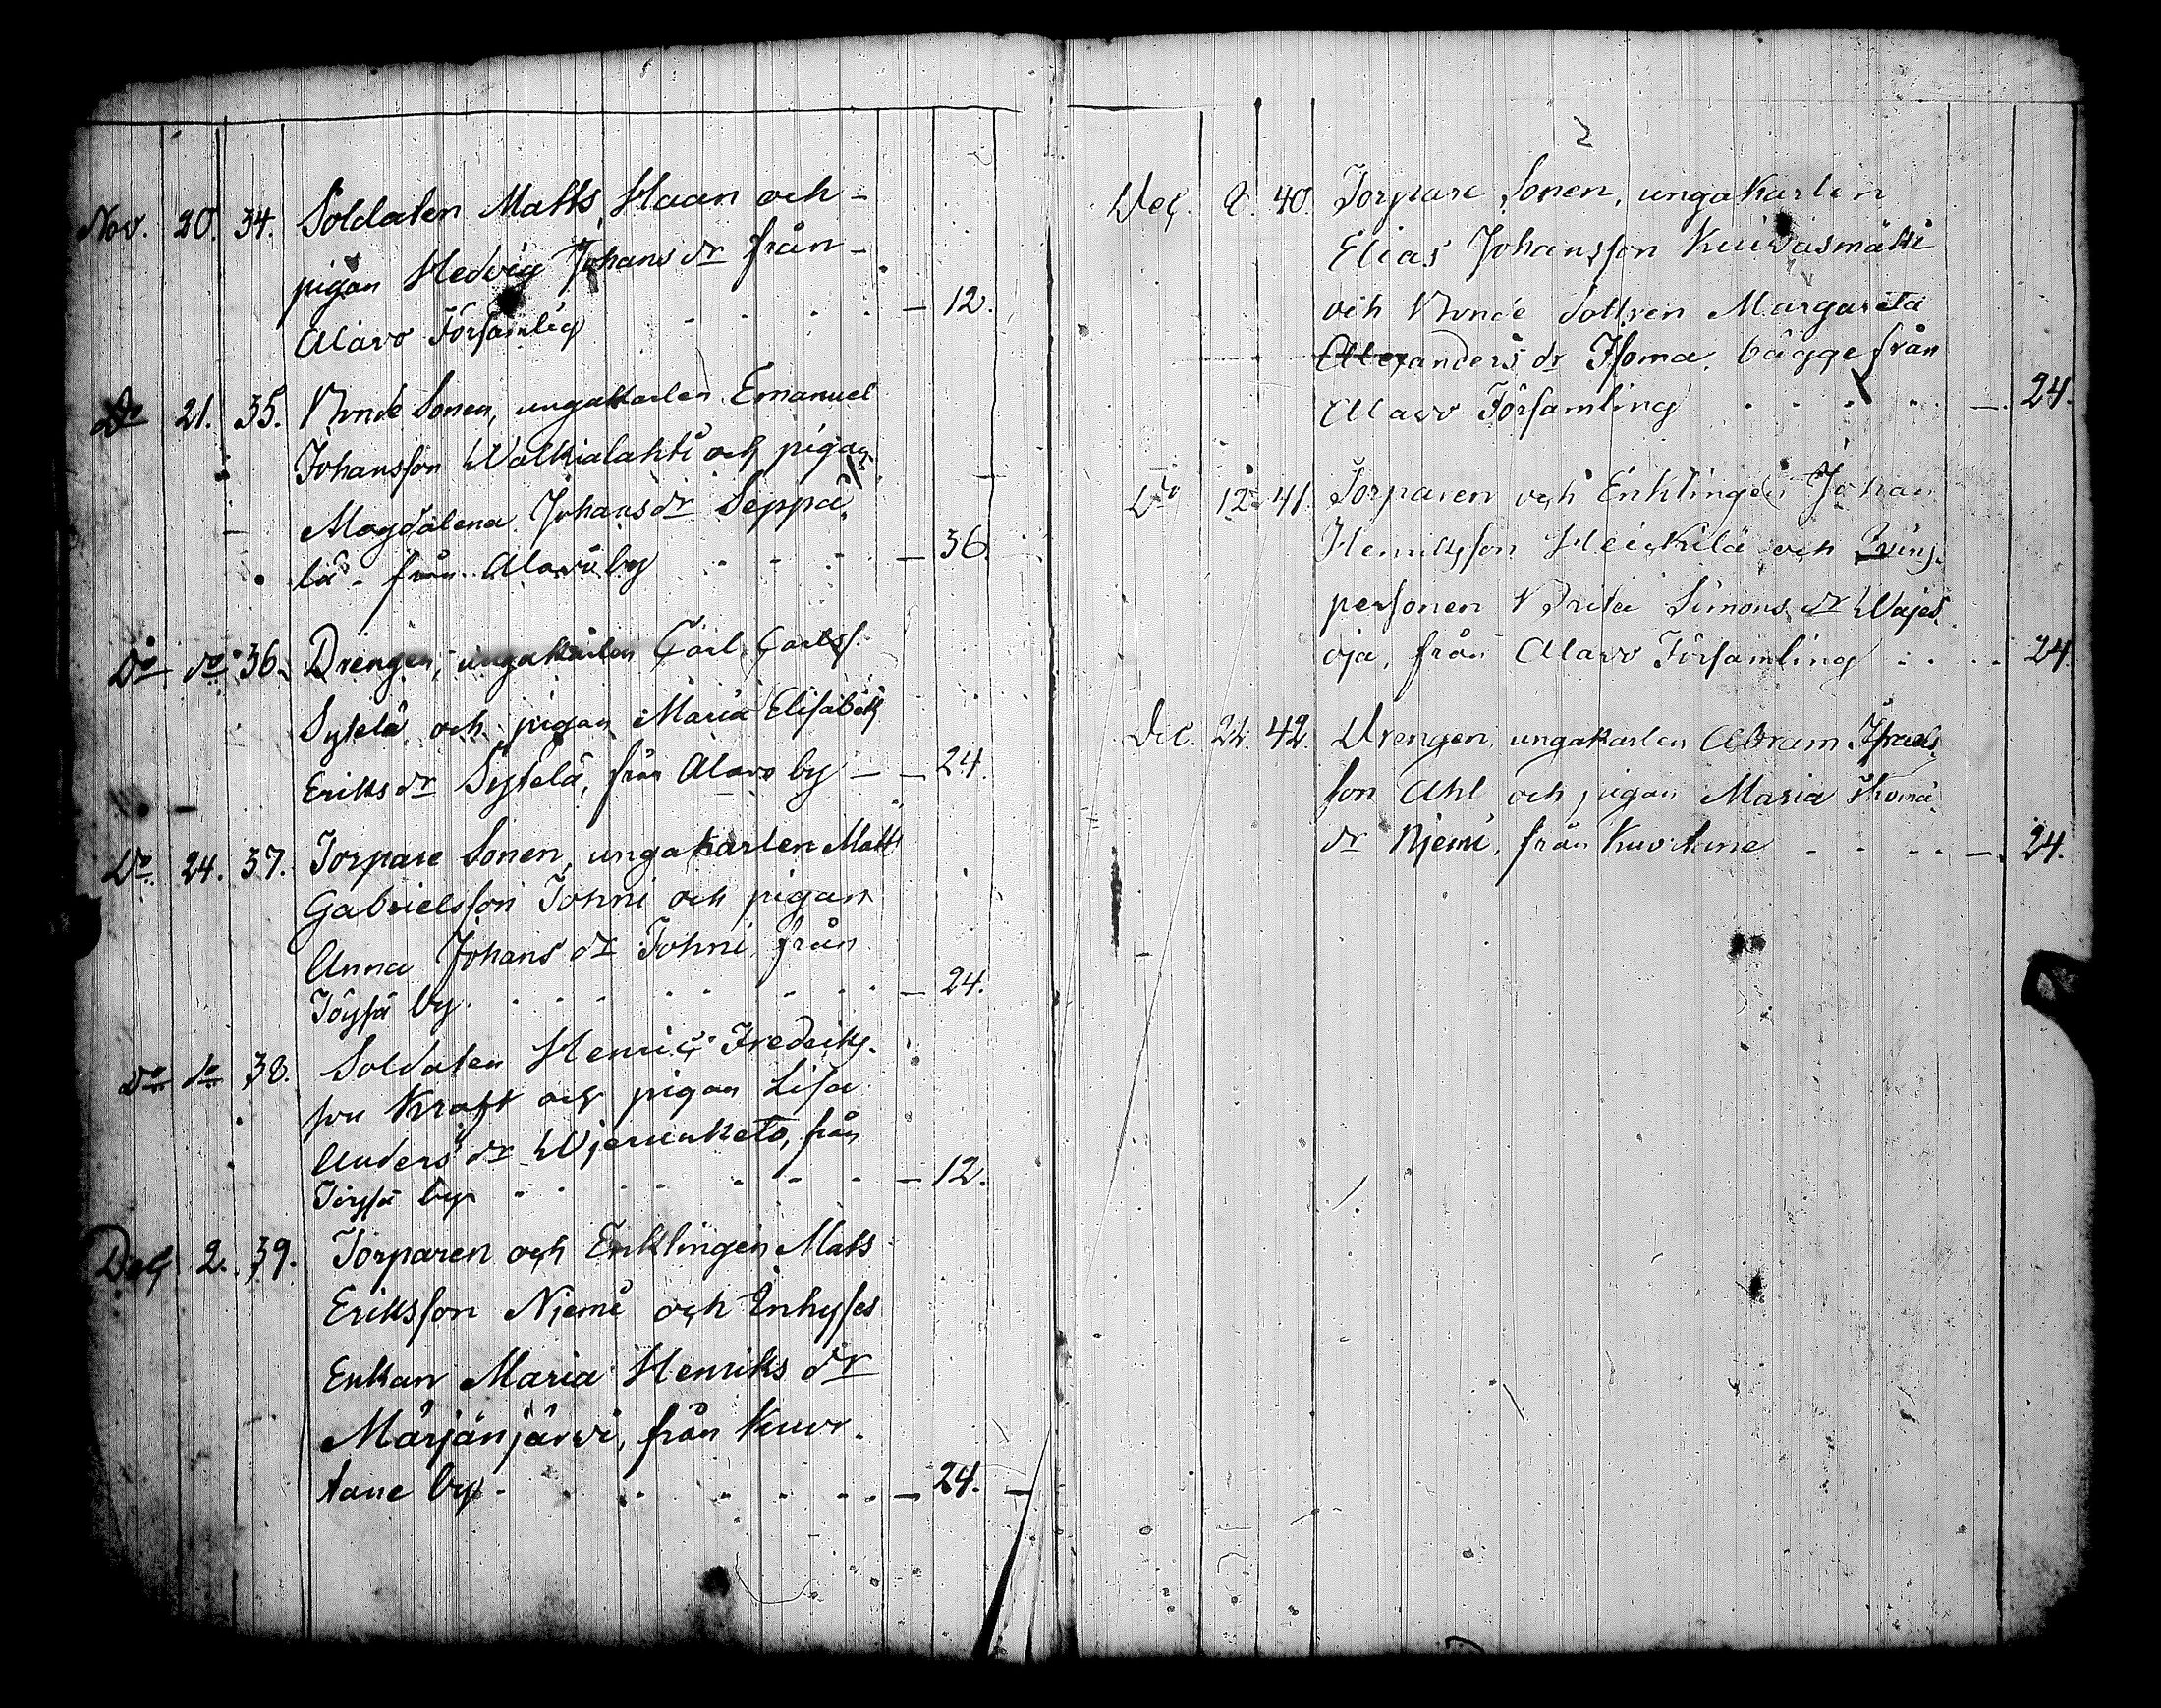 Nov. 20. 34. Soldaten Matts Haan och -
pigan Hedvig Johans dr från -
Alavo Församlig . . . . — 12.
Do 21. 35. Bonde Sonen, ungakarlen Emanuel
Johansson Walkialahti och pigan
Magdalena Johans dr Seppä-
lä - från Alavo by . . . . — 36.
Do do 36. Drengen, ungakarlen Carl Carlss.
Sytelä och pigan Maria Elisabeth
Eriks dr Sytelä, från Alavo by — — 24.
Do 24. 37. Torpare Sonen, ungakarlen Matts
Gabrielsson Tohni och pigan
Anna Johans dr Tohni från
Töysä by . . . . . . — 24.
Do do 38. Soldaten Henric Fredriks-
son Kraft och pigan Lisa
Anders dr från
Töysä by . . . . . . — 12.
Dec 2. 39. Torparen och Enklingen Mats
Eriksson Niemi och Inhyses
Enkan Maria Henriks dr
Märjänjärvi, från Kuor-
tane by . . . . . . — 24. —
2
Dec. 8. 40. Torpare Sonen, ungakarlen
Elias Johansson Kuivasmäki
och Bonde dottren Margareta
Alexanders dr Isoma, bägge från
Alavo Församling . . . . — 24.
Do 12. 41. Torparen och Enklingen Johan
Henriksson Heickilä och
personen Brita Simons dr
oja, från Alavo Församling . . . 24.
Dec. 22. 42. Drengen, ungakarlen Abram Israels
son Ahl och pigan Maria Thoma
dr Njemi, från Kuortane . . . . — 24.